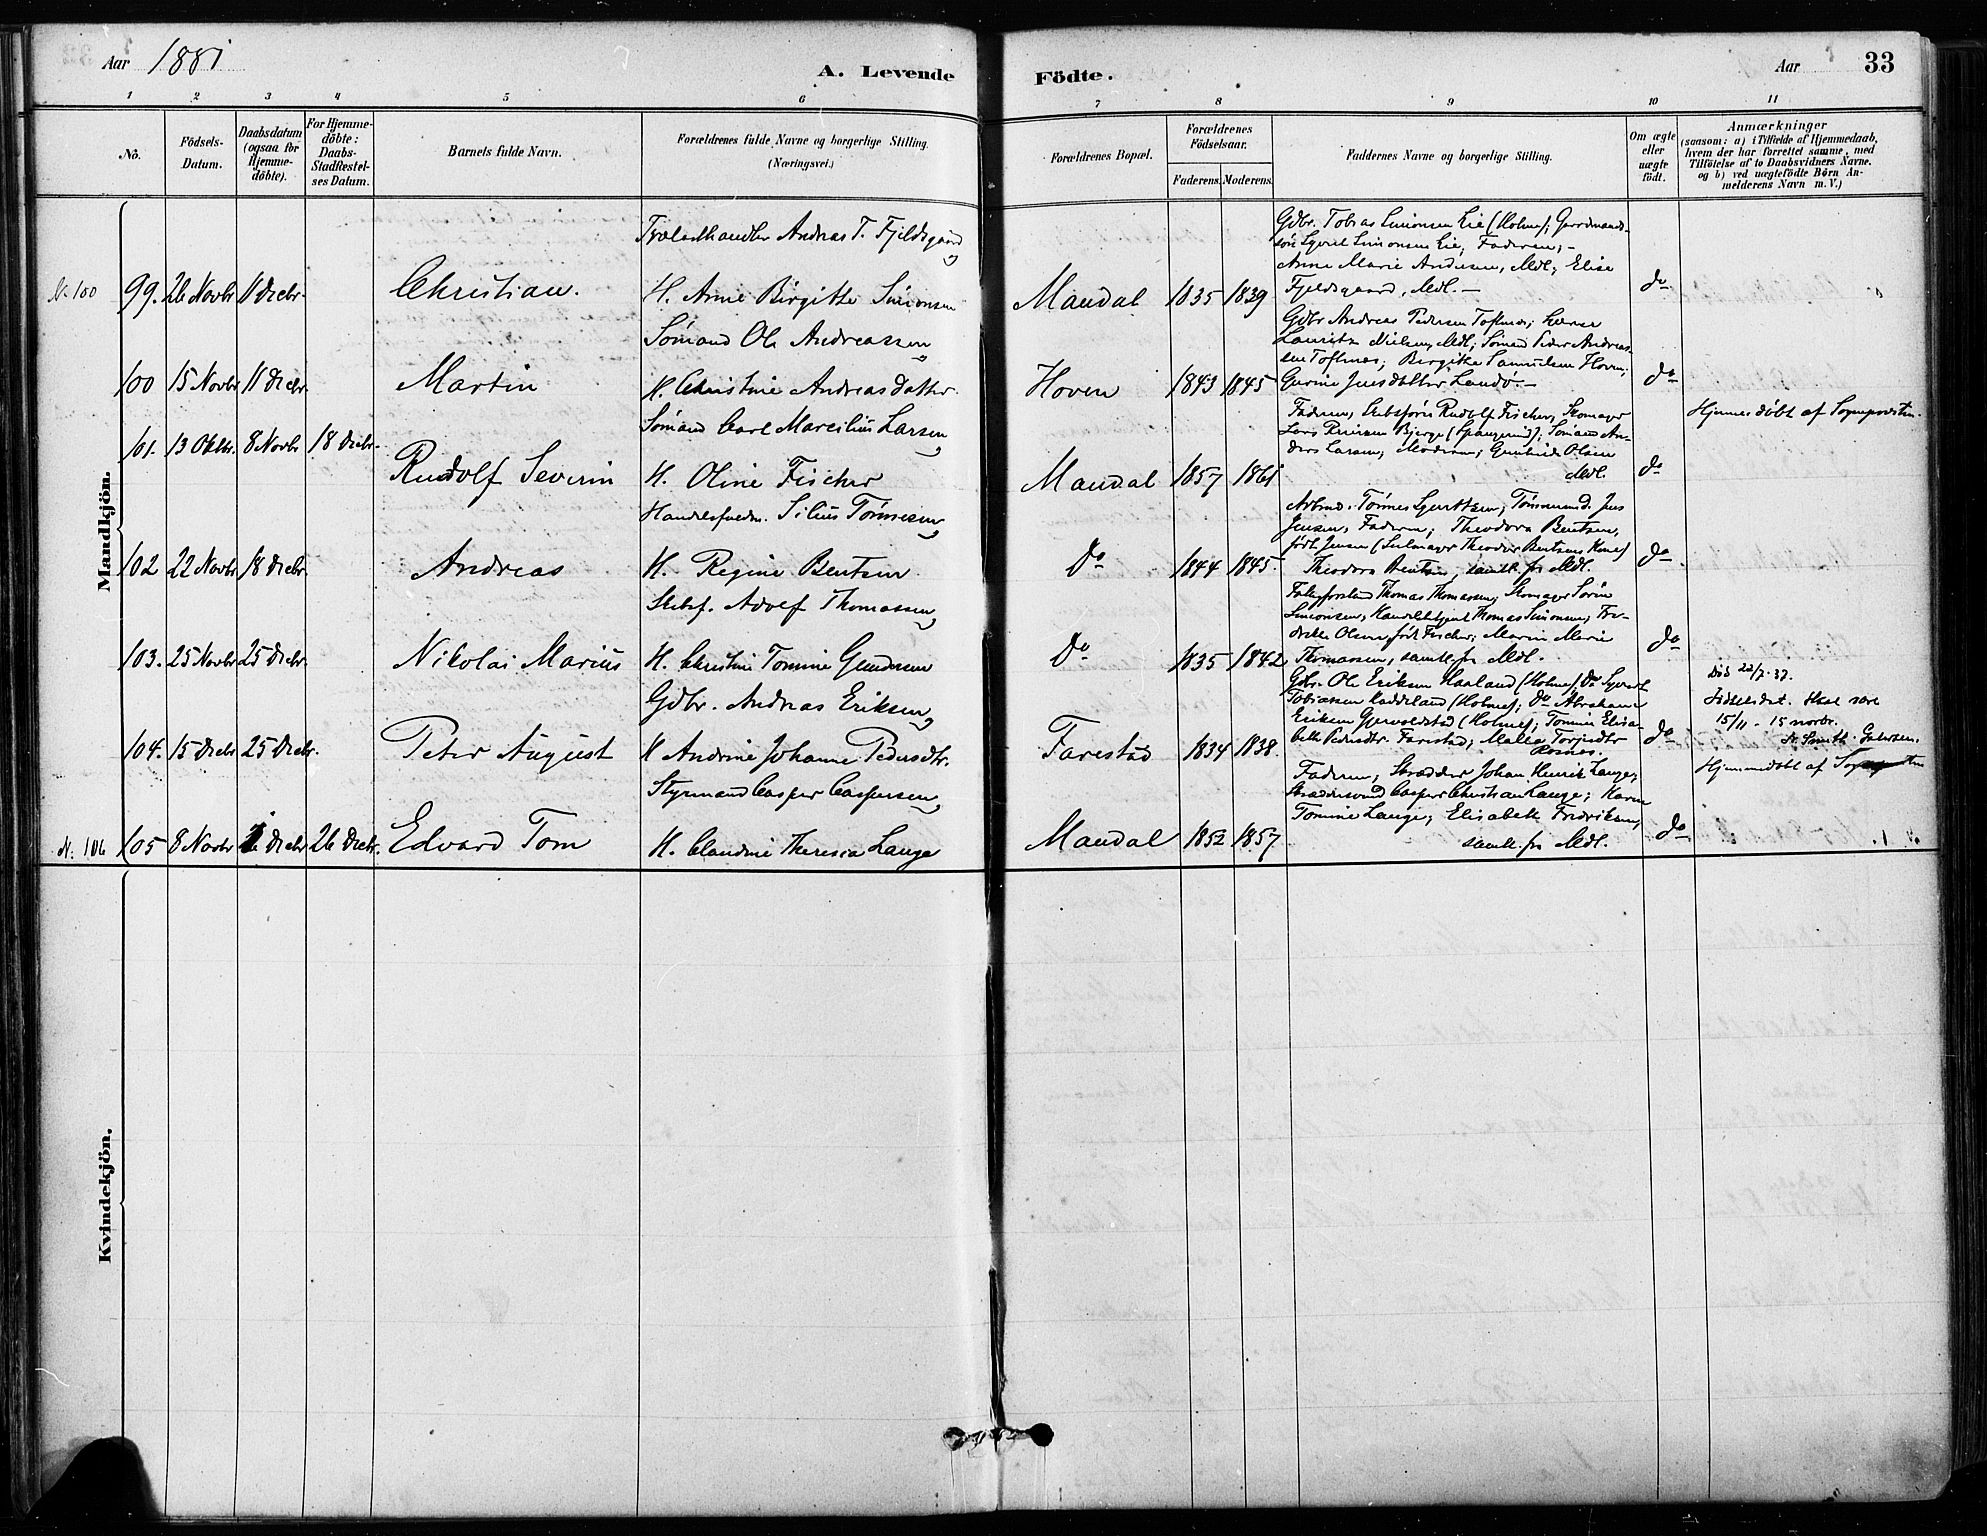 Aar 1881
A. Levende Födte.
Aar 33
1 2 3 4 5 6 7 8 9 10 11
No.
Födsels-Datum.
Daabsdatum (ogsaa for Hjemme-döbte).
For Hjemme-döbte: Daabs-Stadfæstel-ses Datum.
Barnets fulde Navn.
Forældrenes fulde Navne og borgerlige Stilling. (Næringsvei.)
Forældrenes Bopæl.
Forældrenes Födselsaar.
Faderens. Moderens.
Faddernes Navne og borgerlige Stilling.
Om ægte eller uægte födt.
Anmærkninger
(saasom: a) i Tilfælde af Hjemmedaab, hvem der har forrettet samme, med Tilföielse af to Daabsvidners Navne. og b) ved uægtefödte Börn An-melderens Navn m. V.)
Mandkjön.
Trælasthandler Andreas T. Fjeldsgaard
N. 100 99. 26 Novbr 11 Decbr. Christian. H. Anne Birgitte Simonsen Mandal 1835 1839 do
Gdbr. Tobias Simonsen Eie (Holme); Gaardmands-
søn Syvert Simonsen Eie, Faderen;
Anne Marie Andersen, Mdl; Elise
Fjeldsgaard, Mdl.
Sømand Ole Andreassen
100 15 Novbr 11 Decbr. Martin H. Christine Andreasdatter Hoven 1843 1845 do
Gdbr Andreas Pedersen Toftenes;
Lauritz Nielsen, Mdl; Sømand Peder Andreas-
sen Toftenes; Birgitte Samuelsen Hoven;
Gurine Jensdatter Landø.
Sømand Carl Marcilius Larsen
101. 13 Oktbr. 8 Novbr 18 Decbr. Rudolf Severin H. Oline Fischer Mandal 1857 1861 do
Faderen, Skibsfører Rudolf Fischer, Skomager
Lars Bjerge (Spangereid); Sømand An-
ders Larsen; Moderen; Olsen
Mdl.
Hjemmedøbt af Sognepresten.
Handelsfuldm. Silius Tørresen
102 22 Novbr 18 Decbr. Andreas H. Regine Bentsen Do 1844 1845. do
Arbmd. Tønnes Tømmermd. Jens
Jensen, Faderen; Theodora Bentsen,
født Jensen (Seilmager Theodor Bentsens Kone)
Theodora Bentsen, samtl. fra Mdl.
Skibsf. Adolf Thomassen
103. 25 Novbr 25 Decbr. Nikolai Marius H. Christine Tomine Gundersen Do 1835 1842 do
Thomas Thomassen; Skomager Søren
Simonsen, Thomas Simonsen; Fre-
drikke Olsen født Fischer; Maren Marie
Thomassen, samtl. fra Mdl.
Gdbr. Andreas Eriksen
104. 15 Decbr 25 Decbr. Peter August H Andrine Johanne Pedersdtr. Farestad 1834 1838. do
Gdbr. Ole Eriksen Haaland (Holme) Do Syvert
Tobiassen Faddeland (Holme); Do Abraham
Eriksen Gjervoldstad (Holme); Tomine Elisa-
beth Pedersdtr. Farestad; Malea Torjusdtr
Rosnes.
Død 22/7-37.
Fødselsdat. skal være
15/11 - 15 novbr.
N. Smith
Hjemmedøbt af
Styrmand Casper Caspersen
N. 106 105 8 Novbr Decbr 26 Decbr. Edvard Tom H. Claudine Theresia Lange Mandal 1852 1857 do
Faderen; Skrædder Johan Henrik Lange;
Skræddersvend Casper Christian Lange; Karen
Tomine Lange; Elisabeth Fredriksen,
samtl. fra Mdl.
Kvindekjön.